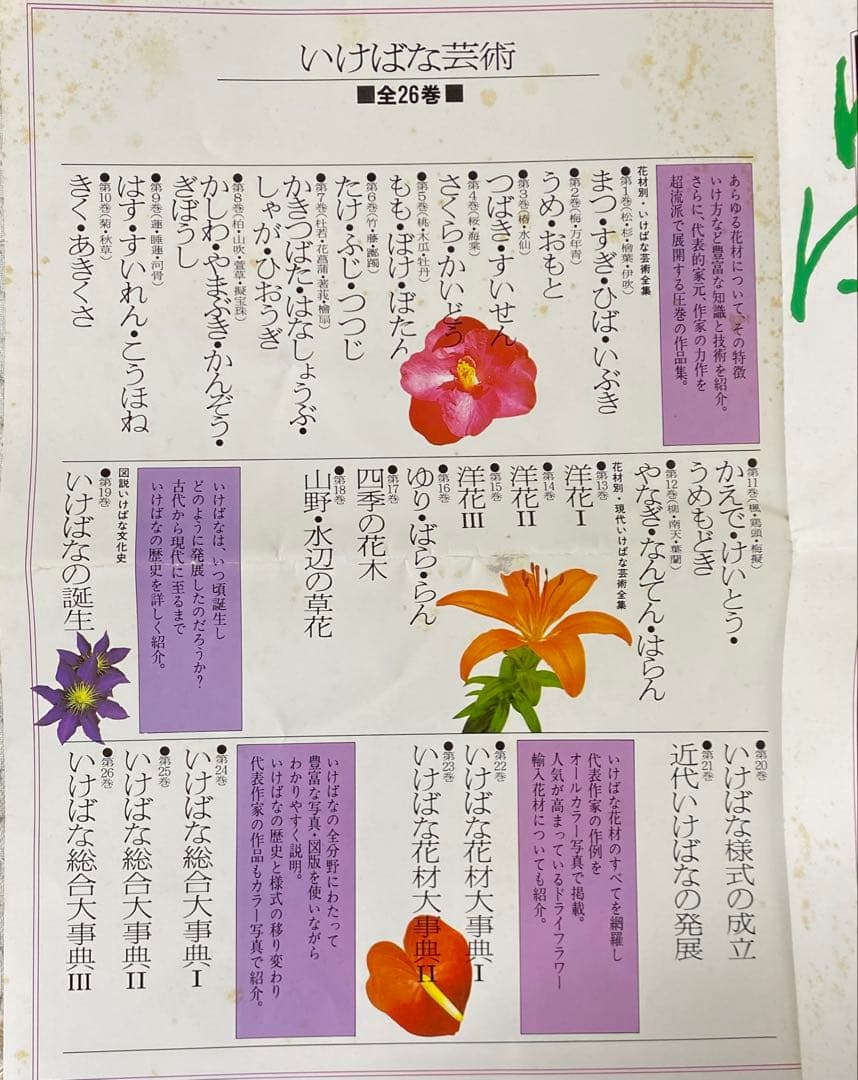 いけばな芸術
■全26巻■
あらゆる花材について、その特徴
いけ方など豊富な知識と技術を紹介。
さらに、代表的家元、作家の力作を
超流派で展開する圧巻の作品集。
花材別・いけばな芸術全集
●第1巻(松・杉・檜葉・伊吹)
まつ・すぎ・ひば・いぶき
●第2巻(梅・万年青)
うめ・おもと
●第3巻(椿・水仙)
つばき・すいせん
●第4巻(桜・海棠)
さくら・かいどう
●第5巻(桃・木瓜・牡丹)
もも・ぼけ・ぼたん
●第6巻(竹・藤・躑躅)
たけ・ふじ・つつじ
●第7巻(杜若・花菖蒲・著莪・檜扇)
かきつばた・はなしょうぶ・
しゃが・ひおうぎ
●第8巻(柏・山吹・萱草・擬宝珠)
かしわ・やまぶき・かんぞう・
ぎぼうし
●第9巻(蓮・睡蓮・河骨)
はす・すいれん・こうほね
●第10巻(菊・秋草)
きく・あきくさ
●第11巻(楓・鶏頭・梅擬)
かえで・けいとう・
うめもどき
●第12巻(柳・南天・葉蘭)
やなぎ・なんてん・はらん
花材別・現代いけばな芸術全集
●第13巻
洋花I
●第14巻
洋花II
●第15巻
洋花III
●第16巻
ゆり・ばら・らん
●第17巻
四季の花木
●第18巻
山野・水辺の草花
いけばなは、いつ頃誕生し
どのように発展したのだろうか?
古代から現代に至るまで
いけばなの歴史を詳しく紹介。
図説いけばな文化史
●第19巻
いけばなの誕生
●第20巻
いけばな様式の成立
●第21巻
近代いけばなの発展
いけばな花材のすべてを網羅し
代表作家の作例を
オールカラー写真で掲載。
人気が高まっているドライフラワー
輸入花材についても紹介。
●第22巻
いけばな花材大事典I
●第23巻
いけばな花材大事典II
いけばなの全分野にわたって
豊富な写真・図版を使いながら
わかりやすく説明。
いけばなの歴史と様式の移り変わり
代表作家の作品もカラー写真で紹介。
●第24巻
いけばな総合大事典I
●第25巻
いけばな総合大事典II
●第26巻
いけばな総合大事典III